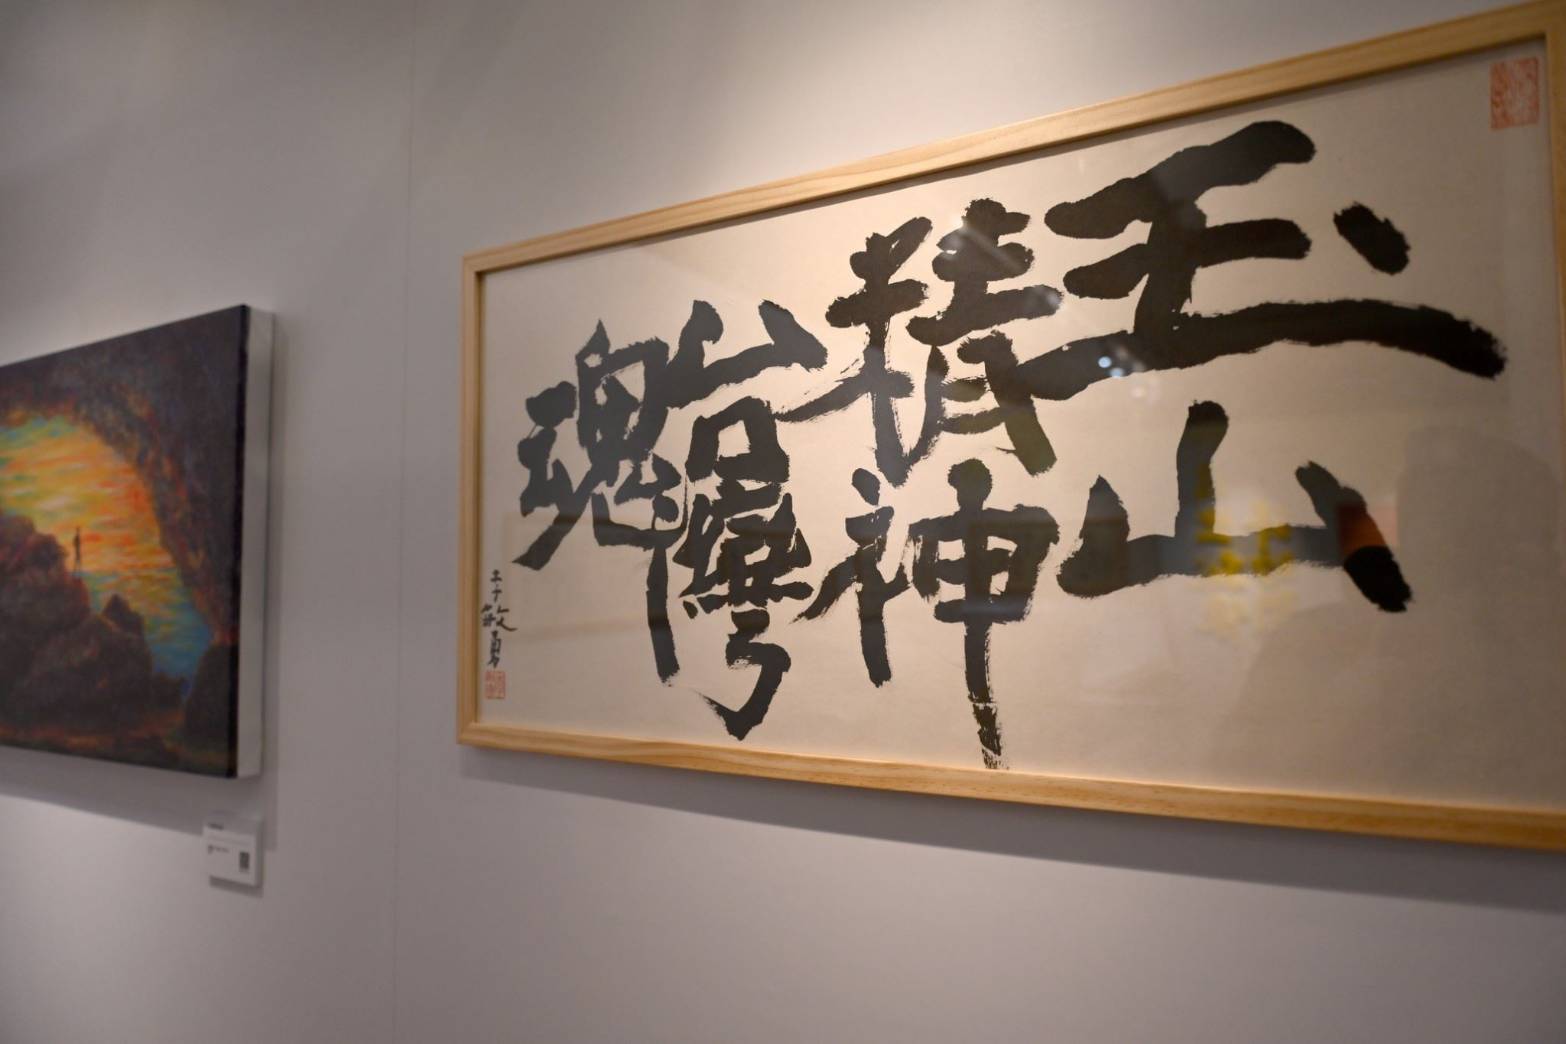 玉山
精神
台灣
魂